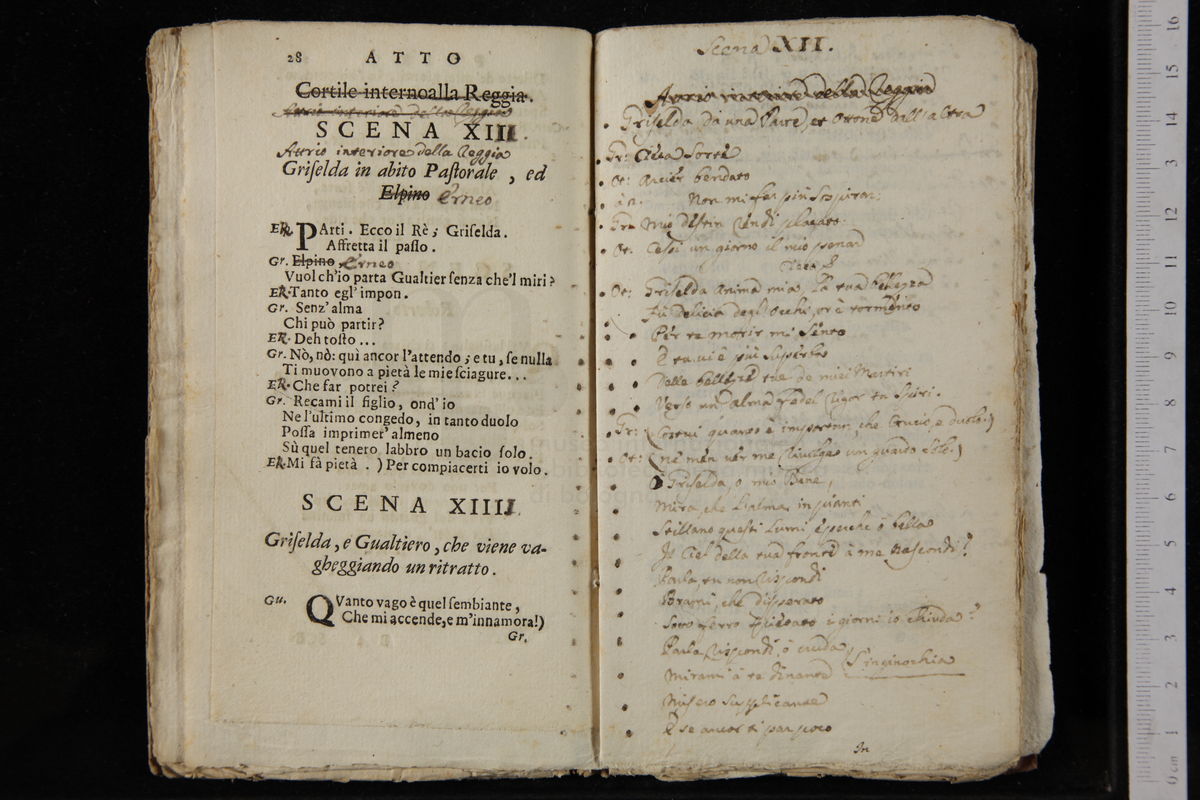 28 ATTO
Cortile internoalla Reggia.
Atrio interiore della Reggia
SCENA XIII.
Atrio interiore della Reggia
Griselda in abito Paſtorale, ed
Elpino Erneo
ER. PArti. Ecco il Rè; Griſelda.
Affretta il paſſo.
Gr. Elpino Erneo
Vuol ch'io parta Gualtier ſenza che'l miri?
ER. Tanto egl' impon.
Gr. Senz' alma
Chi può partir?
ER. Deh toſto ...
Gr. Nò, nò: quì ancor l'attendo; e tu, ſe nulla
Ti muovono a pietà le mie ſciagure...
ER. Che far potrei?
Gr. Recami il figlio, ond' io
Ne l'ultimo congedo, in tanto duolo
Poſſa imprimer' almeno
Sù quel tenero labbro un bacio ſolo.
ER. Mi fà pietà.) Per compiacerti io volo.
SCENA XIIII.
Griſelda, e Gualtiero, che viene va-
gheggiando un ritratto.
Gu. QVanto vago è quel ſembiante,
Che mi accende, e m'innamora!)
Gr.
Scena XII.
Atrio della Reggia
Griselda da una Parte, et Ottone dall'altra
Gr: Sorte
Ot: Arcier bendato
à 2. Non mi far più sospirar.
Gr. Mio destin rendi placato.
Ot. Cessi un giorno il mio penar
Ot: Griselda anima mia, la tua bellezza
Fù delicia degl'Occhi, or è tormento
Per te morir mi sento
E tu più superba
Della beltà che de miei Martiri
Verso un' alma fedel rigor tu spiri.
Gr: (Costui quanto è importun, che crucio, e duolo.)
Ot: (nè men ver me rivolge un guardo solo.)
Griselda, o mio Bene,
Mira, che l'alma in pianti
Stillano questi lumi, e perche ò bella
Il Ciel della tua fronte à me nascondi?
Parla, tu non rispondi
Brami, che disperato
Sotto ferro spietato i giorni io chiuda?
Parla rispondi, ò cruda
Mirami à te dinante (S'inginochia
Misero supplicante
E se ancor ti par poco
In